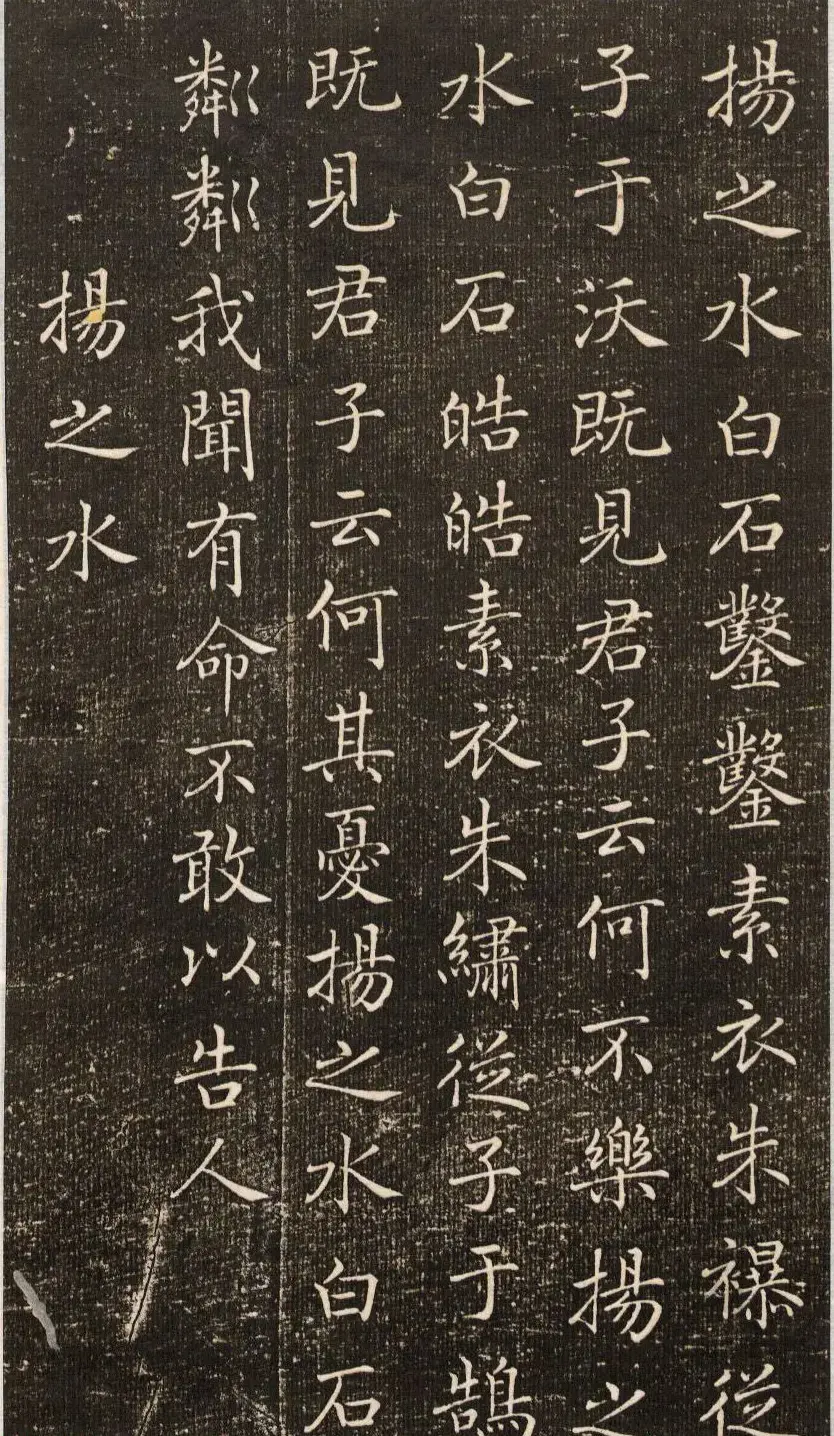 揚之水白石鑿鑿素衣朱襮從
子于沃既見君子云何不樂揚之
水白石皓皓素衣朱繡從子于鵠
既見君子云何其憂揚之水白石
粼粼我聞有命不敢以告人
揚之水